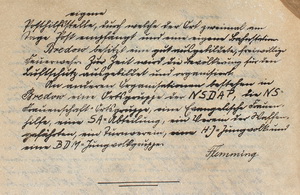 eigene
Posthilfsstelle, durch welche der Ort zweimal am
Tage Post empfängt und ein eigener Briefkasten.
Bredow besitzt eine gut ausgebildete, freiwillige
Feuerwehr. Zur Zeit wird die Bevölkerung für den
Luftschutz ausgebildet und organisiert.
An anderen Organisationen bestehen in
Bredow eine Ortsgruppe der NSDAP., die NS-
Frauenschaft-Ortsgruppe, eine Evangelische Frauen-
hilfe, eine SA-Abteilung, ein Verein der Waffen-
gefährten, ein Turnverein, eine HJ-Jungvolk und
eine BDM-Jungvolkgruppe.
Flemming